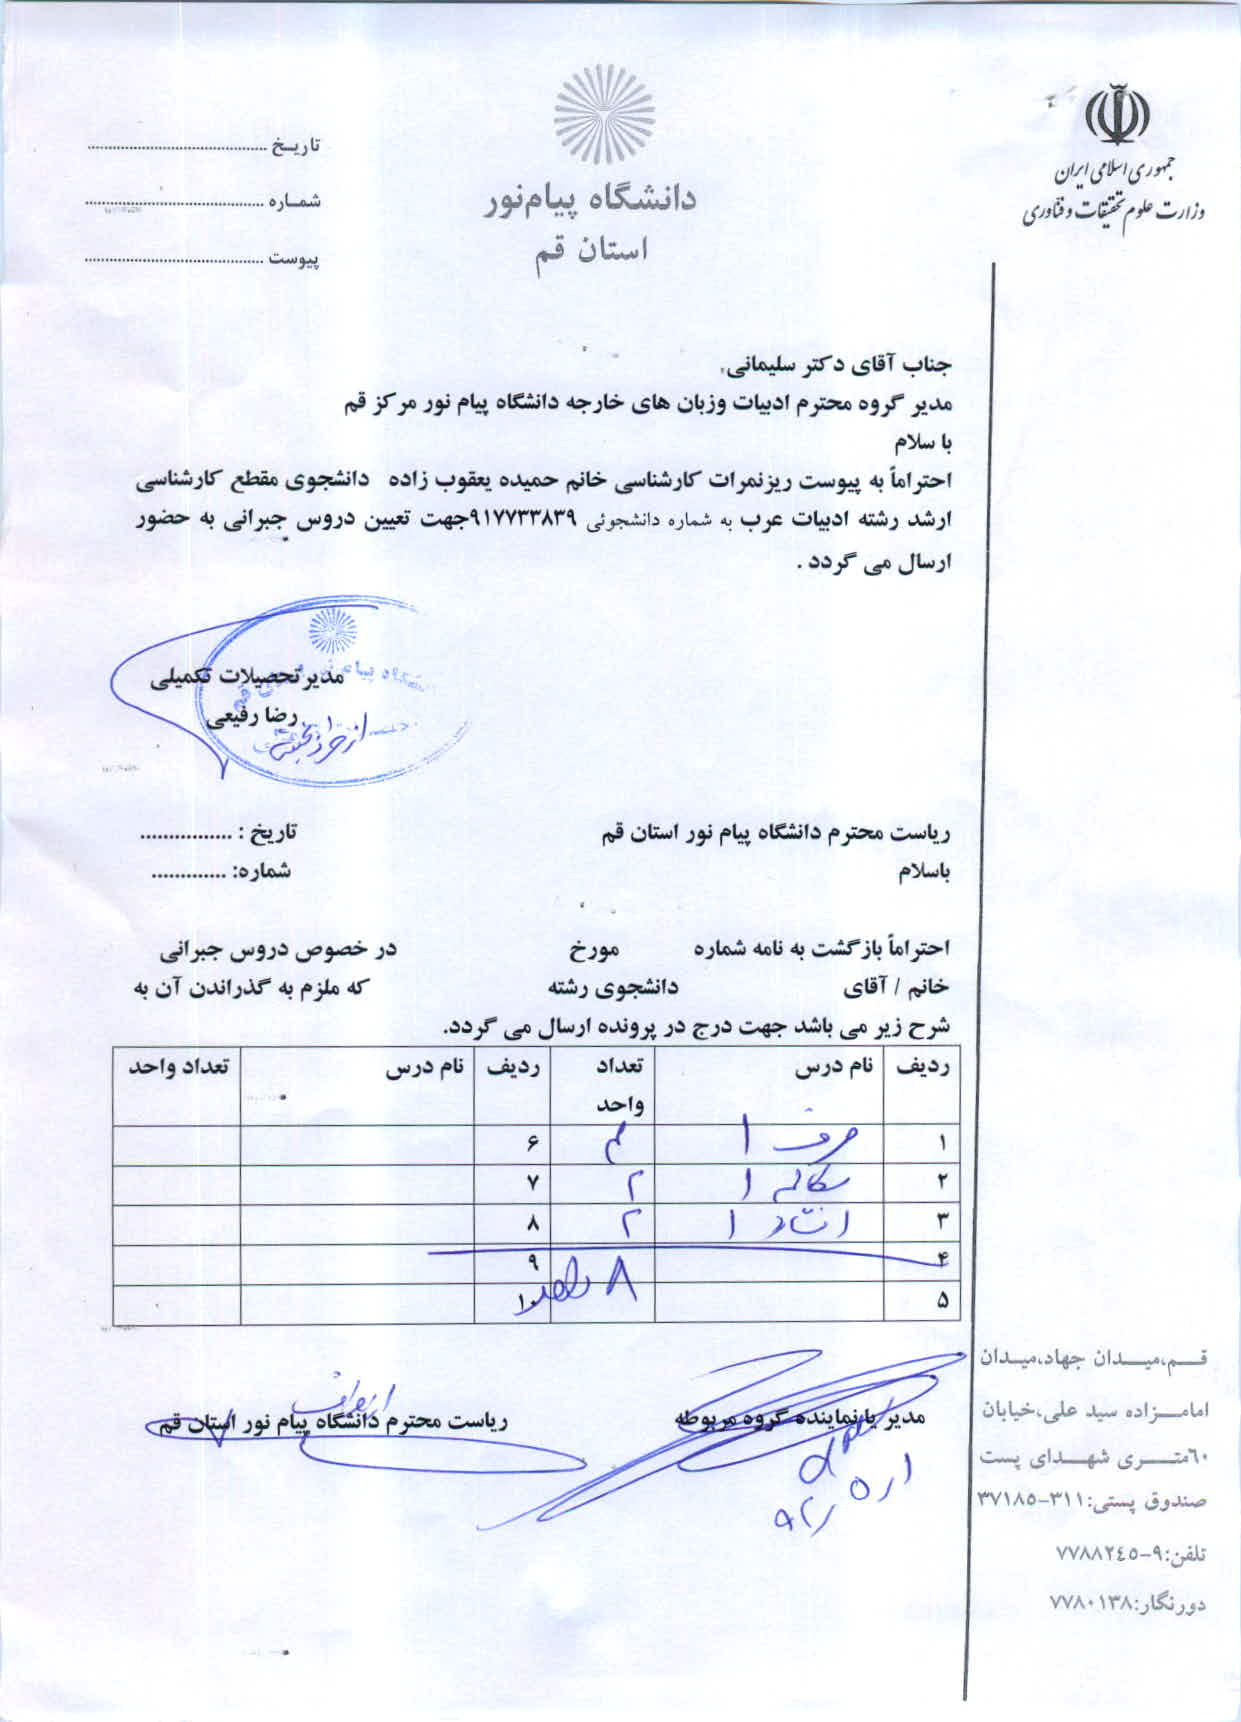 جمهوری اسلامی ایران
وزارت علوم تحقیقات و فناوری
دانشگاه پیام‌نور
استان قم
تاریـخ ..........................................
شمـاره ..........................................
پیوست ..........................................
جناب آقای دکتر سلیمانی
مدیر گروه محترم ادبیات وزبان های خارجه دانشگاه پیام نور مرکز قم
با سلام
احتراماً به پیوست ریزنمرات کارشناسی خانم حمیده یعقوب زاده دانشجوی مقطع کارشناسی
ارشد رشته ادبیات عرب به شماره دانشجوئی ۹۱۷۷۳۳۸۳۹جهت تعیین دروس جبرانی به حضور
ارسال می گردد .
مدیر تحصیلات تکمیلی
رضا رفیعی
ریاست محترم دانشگاه پیام نور استان قم تاریخ : ................
باسلام شماره: .............
احتراماً بازگشت به نامه شماره مورخ در خصوص دروس جبرانی
خانم / آقای دانشجوی رشته که ملزم به گذراندن آن به
شرح زیر می باشد جهت درج در پرونده ارسال می گردد.
ردیف نام درس تعداد واحد ردیف نام درس تعداد واحد
۱ صرف ۱ ۴ ۶
۲ مکالمه ۱ ۲ ۷
۳ ۱ ۲ ۸
۴ ۹
۵ ۸ واحد ۱۰
مدیر یا نماینده گروه مربوطه ریاست محترم دانشگاه پیام نور استان قم
قـــم،میـــدان جهاد،میـدان
امامـــزاده سید علی،خیابان
٦٠متـــری شهـــدای پست
صندوق پستی:۳۱۱-۳۷۱۸۵
تلفن:۹-۷۷۸۸۲٤۵
دورنگار:۷۷۸۰۱۳۸